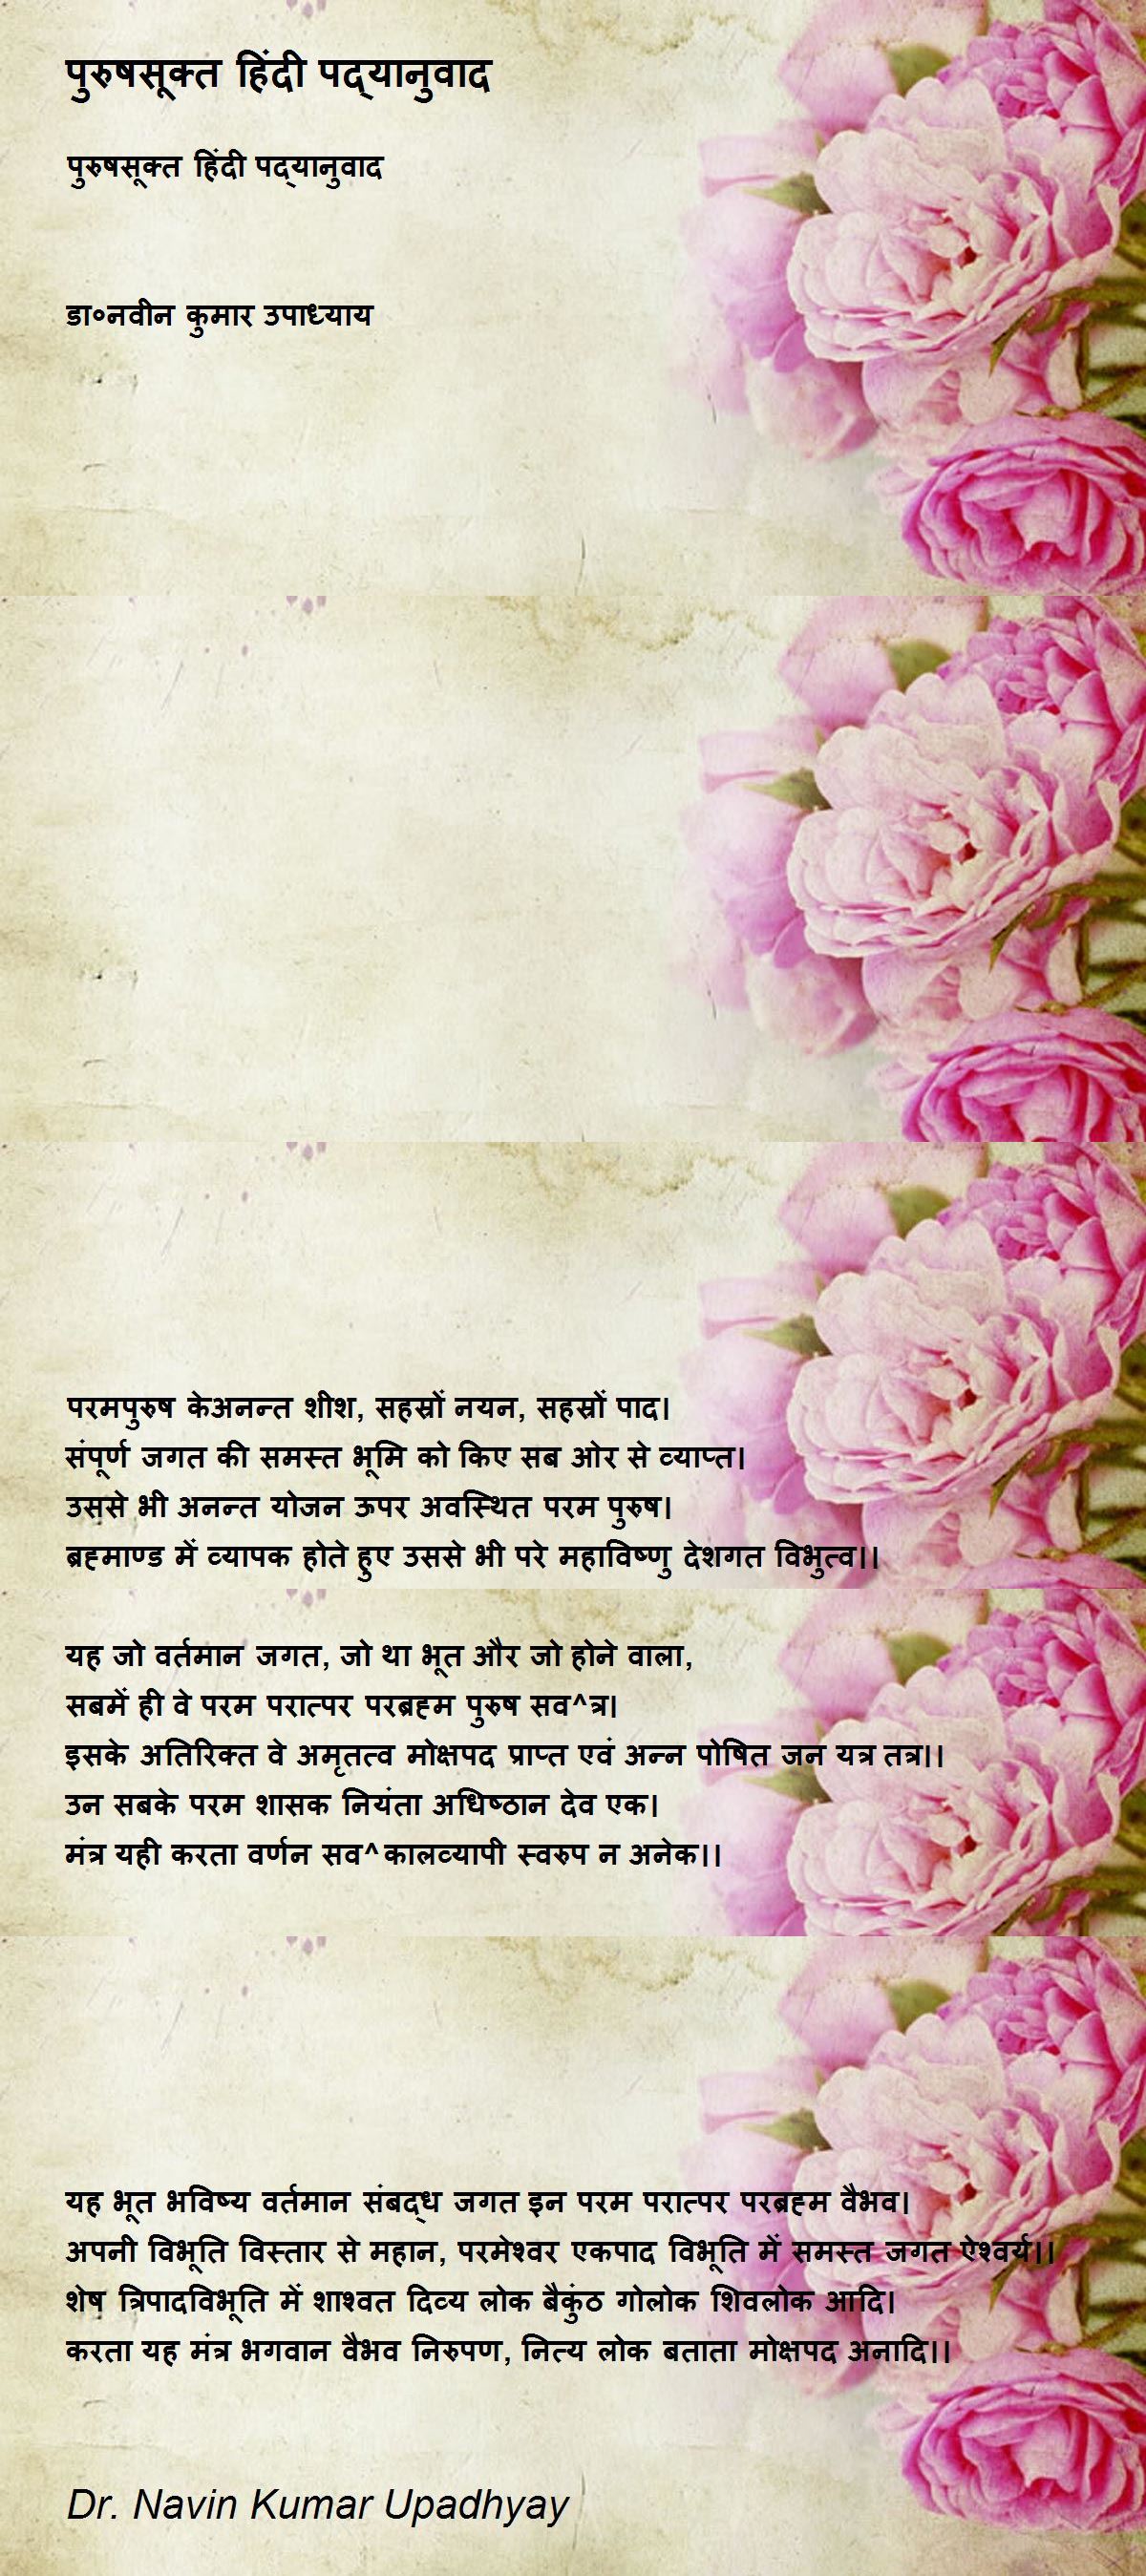 पुरुषसूक्त हिंदी पद्यानुवाद
पुरुषसूक्त हिंदी पद्यानुवाद
डा॰नवीन कुमार उपाध्याय
परमपुरुष केअनन्त शीश, सहस्रों नयन, सहस्रों पाद।
संपूर्ण जगत की समस्त भूमि को किए सब ओर से व्याप्त।
उससे भी अनन्त योजन ऊपर अवस्थित परम पुरुष।
ब्रह्माण्ड में व्यापक होते हुए उससे भी परे महाविष्णु देशगत विभुत्व।।
यह जो वर्तमान जगत, जो था भूत और जो होने वाला,
सबमें ही वे परम परात्पर परब्रह्म पुरुष सव^त्र।
इसके अतिरिक्त वे अमृतत्व मोक्षपद प्राप्त एवं अन्न पोषित जन यत्र तत्र।।
उन सबके परम शासक नियंता अधिष्ठान देव एक।
मंत्र यही करता वर्णन सव^कालव्यापी स्वरुप न अनेक।।
यह भूत भविष्य वर्तमान संबद्ध जगत इन परम परात्पर परब्रह्म वैभव।
अपनी विभूति विस्तार से महान, परमेश्वर एकपाद विभूति में समस्त जगत ऐश्वर्य।।
शेष त्रिपादविभूति में शाश्वत दिव्य लोक बैकुंठ गोलोक शिवलोक आदि।
करता यह मंत्र भगवान वैभव निरुपण, नित्य लोक बताता मोक्षपद अनादि।।
Dr. Navin Kumar Upadhyay